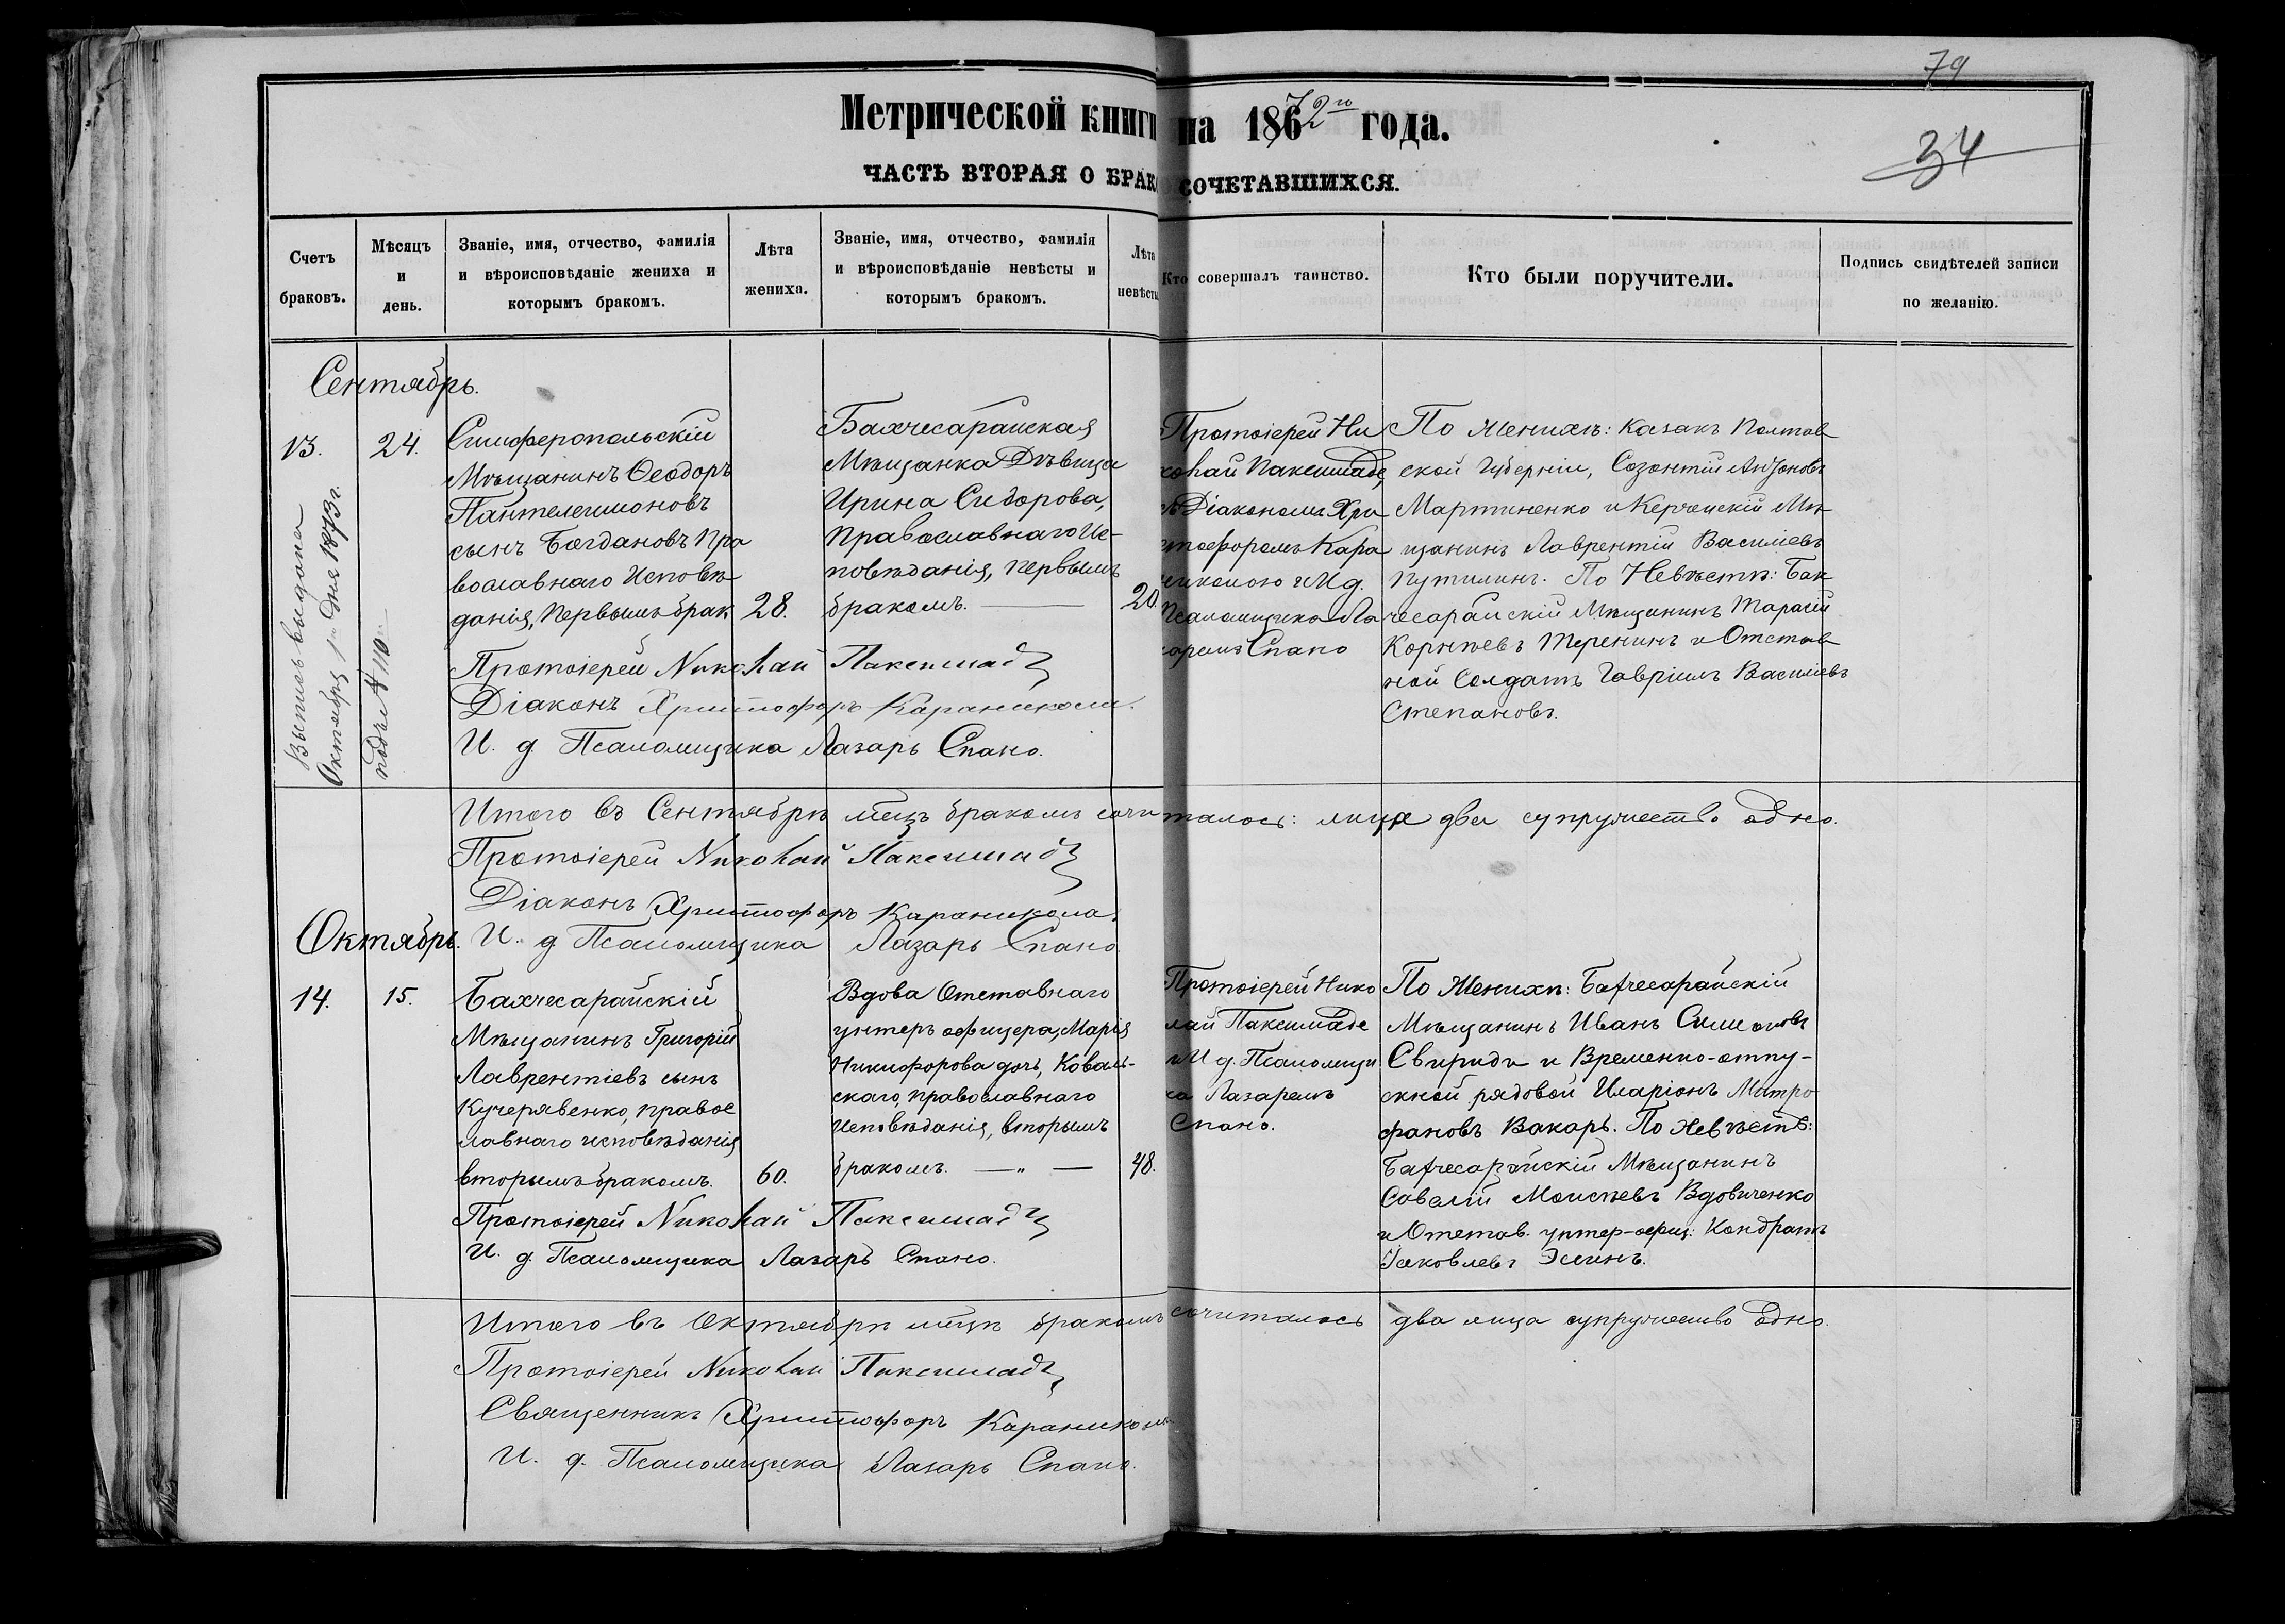 79
34
Метрической книги на 1872го года.
ЧАСТЬ ВТОРАЯ О БРАКОСОЧЕТАВШИХСЯ.
Счетъ
браковъ.
Мѣсяцъ
и
день.
Званіе, имя, отчество, фамилія
и вѣроисповѣданіе жениха и
которымъ бракомъ.
Лѣта
жениха.
Званіе, имя, отчество, фамилія
и вѣроисповѣданіе невѣсты и
которымъ бракомъ.
Лѣта
невѣсты
Кто совершалъ таинство.
Кто были поручители.
Подпись свидѣтелей записи
по желанію.
Сентябрь.
13.
24.
Симферопольскій
Мѣщанинъ Ѳеодоръ
Пантелеимоновъ
сынъ Богдановъ Пра
вославнаго Исповѣ
данія, Первымъ брак
28.
Бахчесарайская
Мѣщанка Дѣвица
Ирина Сидорова,
Православнаго Ис-
повѣданія, первымъ
бракомъ.
20.
Протоіерей Ни
колай Паксимаде,
съ Діакономъ Хри
стофоромъ Кара
николою и И д.
Псаломщика Ла
заремъ Спано
По Женихѣ: Казакъ Полтав
ской Губерніи, Созонтій Антоновъ
Мартиненко и Керченскій Мѣ
щанинъ Лаврентій Василіевъ
Путилинъ. По Невѣстѣ: Бах
чесарайскій Мѣщанинъ Тарасій
Корнѣевъ Теренинъ и Отстав
ной Солдатъ Гавріилъ Василіевъ
Степановъ.
Выпись выдана
Октября 1го дня 1873 г.
подъ № 110
Протоіерей Николай Паксимади
Діаконъ Христофоръ Караникола.
И. д Псаломщика Лазарь Спано.
Итого въ Сентябрѣ мцѣ бракомъ сочиталось: лица два супружество одно.
Протоіерей Николай Паксимади
Діаконъ Христофоръ Караникола.
И. д Псаломщика Лазарь Спано.
Октябрь.
14.
15.
Бахчесарайскій
Мѣщанинъ Григорій
Лаврентіевъ сынъ
Кучерявенко, правос
лавнаго исповѣданія
вторымъ бракомъ.
60.
Вдова Отставнаго
унтеръ офицера, Марія
Никифорова дочь, Коваль-
скаго, православнаго
Исповѣданія, вторымъ
бракомъ. — „ —
48.
Протоіерей Нико
лай Паксимаде
и И д. Псаломщи
ка Лазаремъ
Спано.
По Женихѣ: Бахчесарайскій
Мѣщанинъ Иванъ Симеоновъ
Свириди и Временно-отпу-
скной рядовой Иларіонъ Митро
фановъ Вакарь. По невѣстѣ:
Бахчесарайскій Мѣщанинъ
Савелій Моисѣевъ Вдовиченко
и Отстав. унтер-офиц: Кондратъ
Яковлевъ Эсинъ.
Протоіерей Николай Паксимади
И. д. Псаломщика Лазарь Спано.
Итого въ Октябрѣ мцѣ бракомъ сочиталось два лица супружество одно.
Протоіерей Николай Паксимади
Священникъ Христофоръ Караникола
И. д. Псаломщика Лазарь Спано.